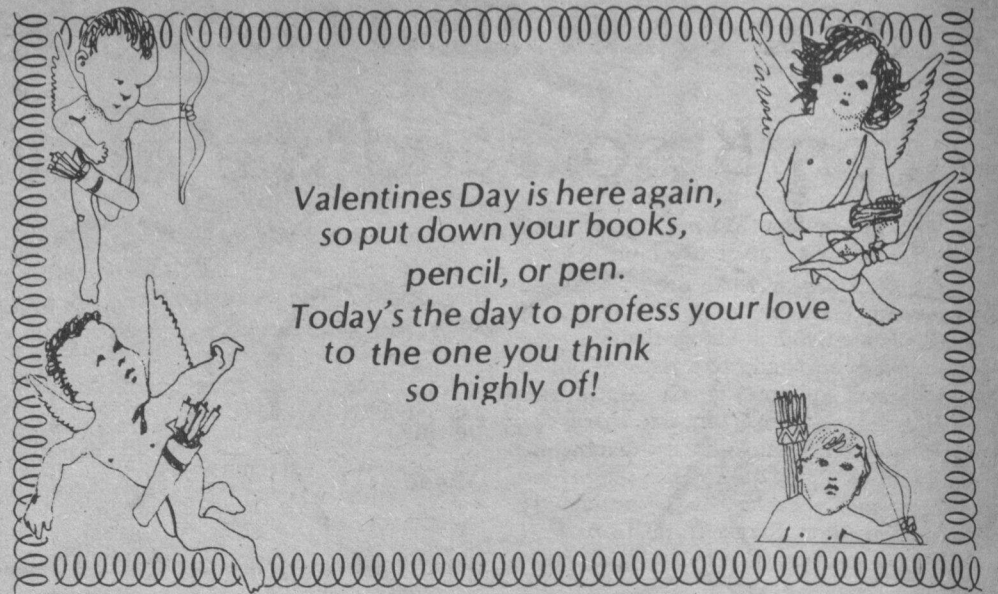 Valentines Day is here again,
so put down your books,
pencil, or pen.
Today's the day to profess your love
to the one you think
so highly of!